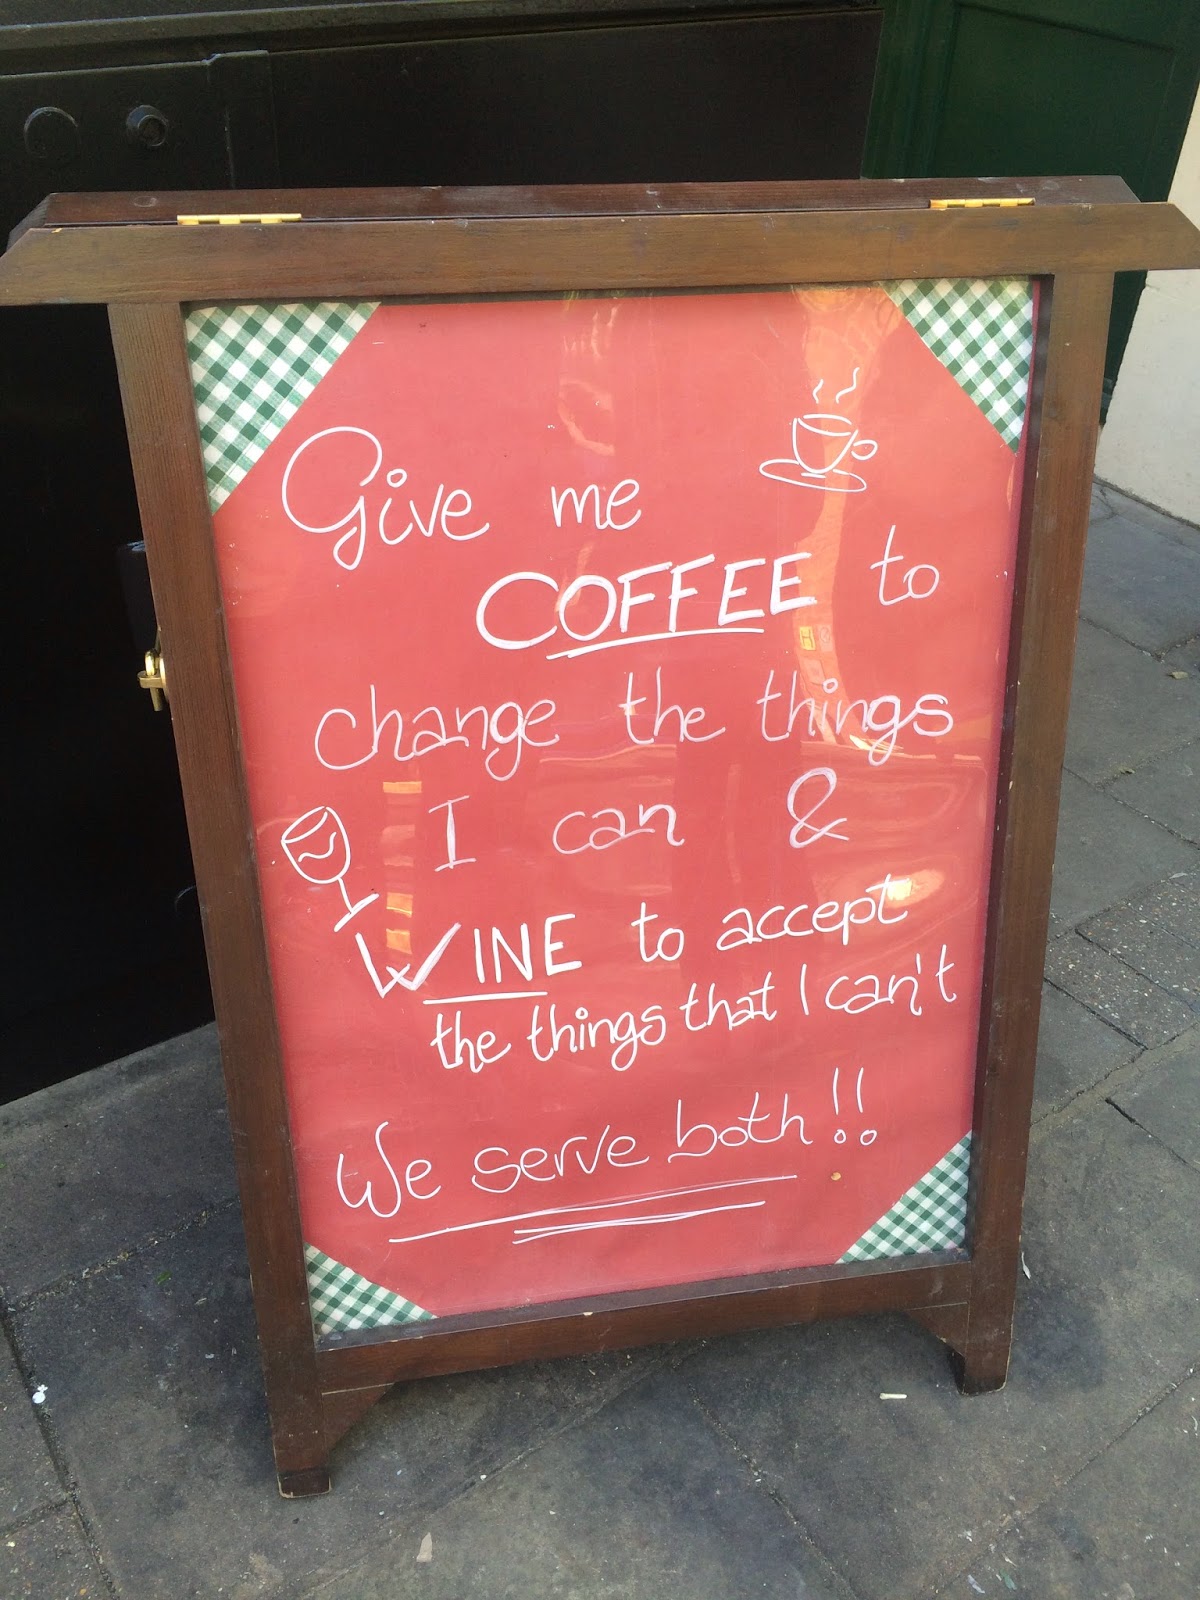 Give me
COFFEE to
change the things
I can &
WINE to accept
the things that I can't
We serve both!!